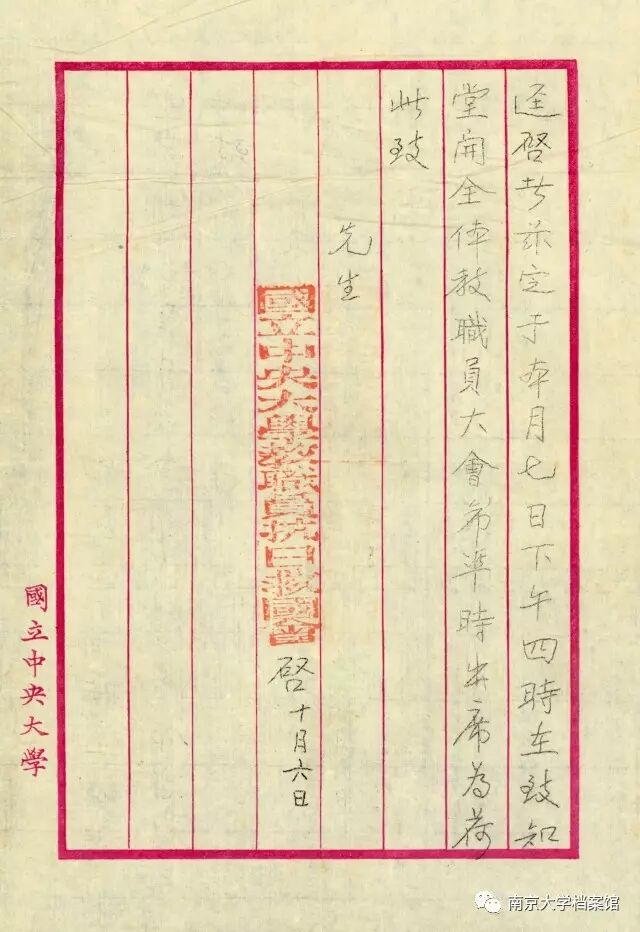 迳啓者茲定于本月七日下午四時在致知
堂開全体教職員大會希準時出席為荷
此致
先生
國立中央大學教職員抗日救國會
啓十月六日
國立中央大學
南京大学档案馆